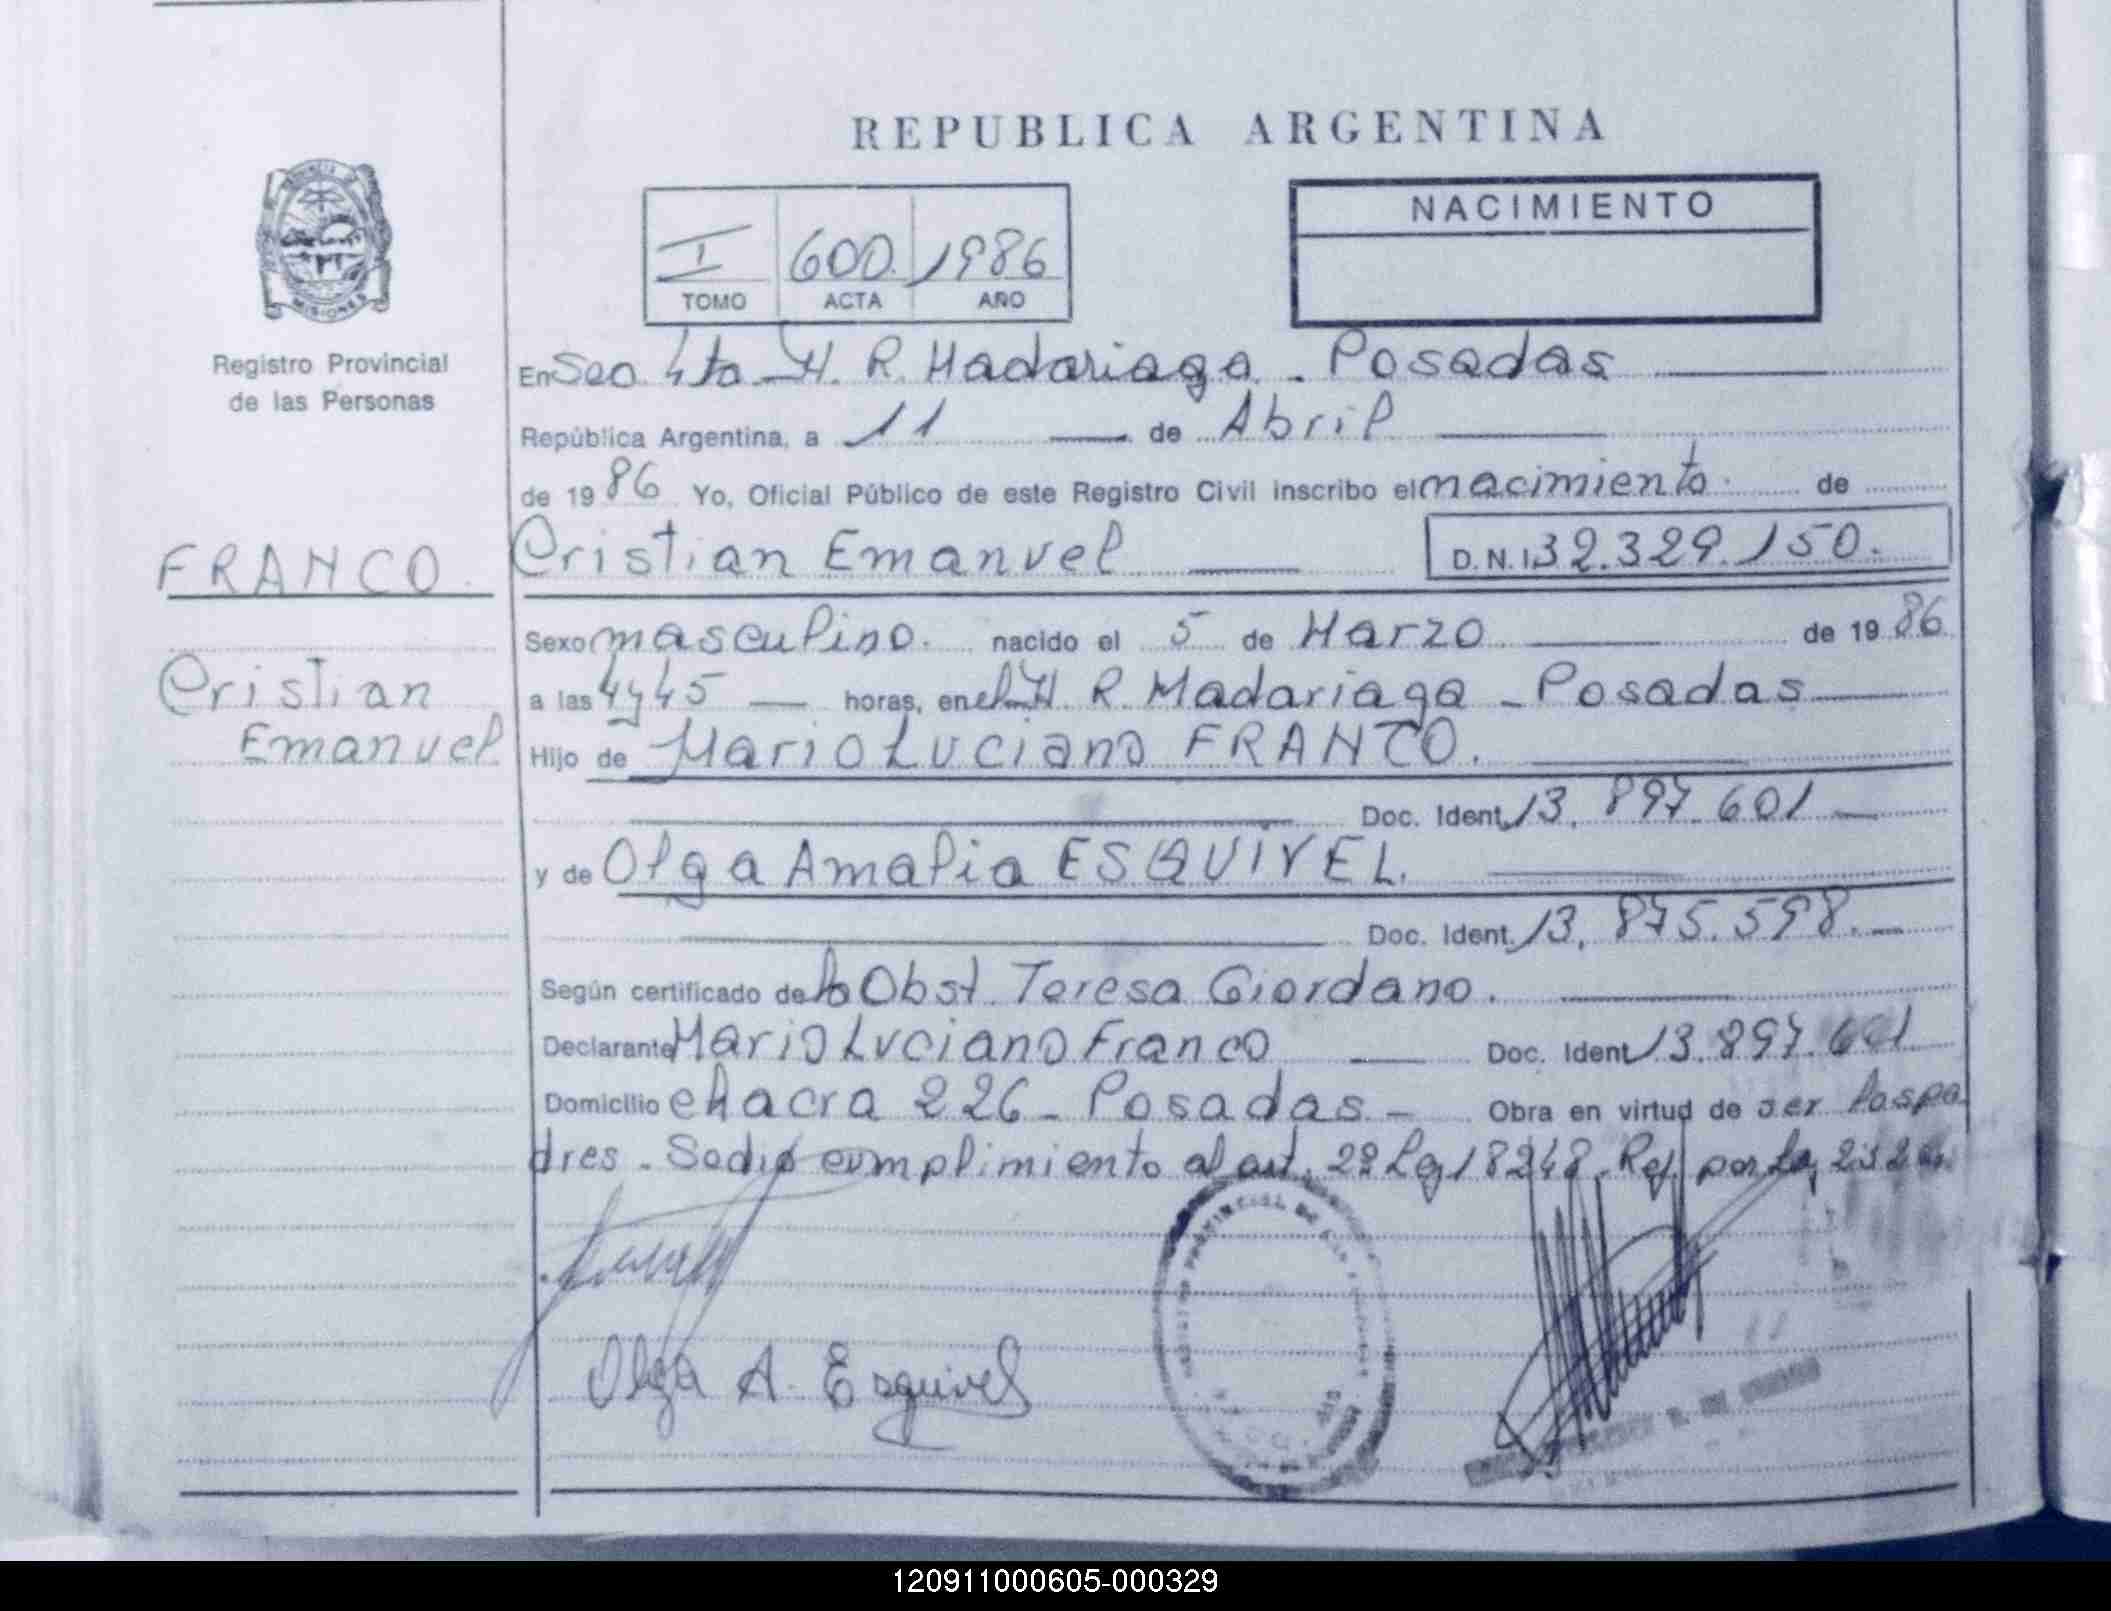 REPUBLICA ARGENTINA
NACIMIENTO
I 600 1986
TOMO ACTA AÑO
MISIONES
Registro Provincial
de las Personas
En Sec 4ta H. R. Madariaga - Posadas
República Argentina, a 11 de Abril
de 1986 Yo, Oficial Público de este Registro Civil inscribo el nacimiento de
FRANCO
Cristian Emanuel D.N.I. 32.329.150.
Sexo masculino. nacido el 5 de Marzo de 1986
Cristian
Emanuel
a las 4y45 horas, en el H. R. Madariaga - Posadas
Hijo de Mario Luciano FRANCO.
Doc. Ident. 13.897.601
y de Olga Amalia ESQUIVEL.
Doc. Ident. 13.875.598.
Según certificado de la Obst. Teresa Giordano.
Declarante Mario Luciano Franco Doc. Ident. 13.897.601
Domicilio chacra 226 - Posadas - Obra en virtud de ser los pa
dres. Se dió cumplimiento al art. 22 Ley 18248. Ref. por Ley
Olga A. Esquivel
120911000605-000329